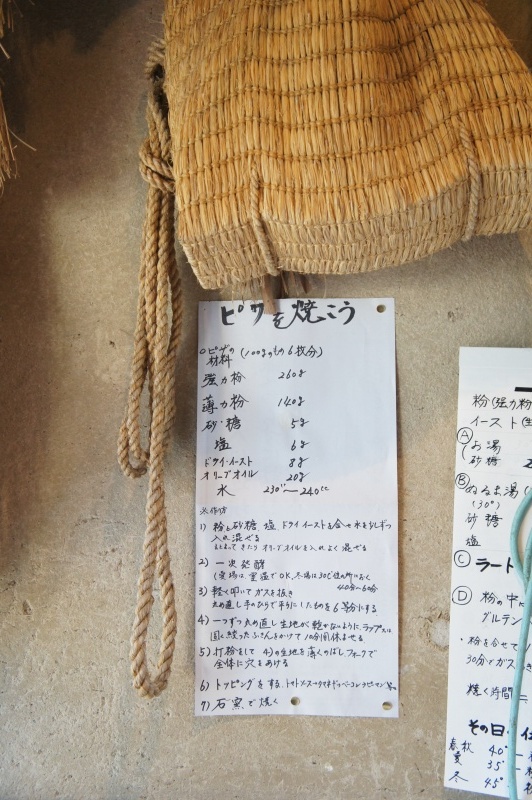 ピザを焼こう
○ピザの材料 (100gのもの6枚分)
強力粉 260g
薄力粉 140g
砂・糖 5g
塩 6g
ドライ・イースト 8g
オリーブオイル 20g
水 230~240cc
※作方
1) 粉と砂糖 塩 ドライイーストを合せ水を少しずつ
入れ混ぜる
まとまってきたらオリーブオイルを入れよく混ぜる
2) 一次発酵
(夏場は、室温でOK、冬場は30℃位の所におく
40分~60分
3) 軽く叩いてガスを抜き
丸め直し手のひらで平らにしたものを6等分にする
4) 一つずつ丸め直し生地が乾かないように、ラップ又は
固く絞ったふきんをかけて10分間休ませる
5) 打粉をして 4)の生地を薄くのばしフォークで
全体に穴をあける
6) トッピングをする、トマトソース→タマネギ→ベーコン→ピーマン
7) 石窯で焼く
粉(強力粉
イースト(生
Ⓐ お湯
砂糖
Ⓑ ぬるま湯(
(30°)
砂糖
塩
Ⓒ ラート
Ⓓ 粉の中に
グルテン
・粉を合せて
30分でガス
焼く時間=
その日
春秋 40°
夏 35°
冬 45°